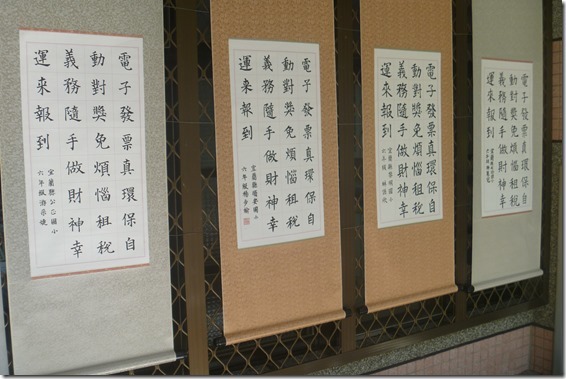 電子發票真環保自
動對獎免煩惱租稅
義務隨手做財神幸
運來報到
宜蘭縣公正國小
六年級游
電子發票真環保自
動對獎免煩惱租稅
義務隨手做財神幸
運來報到
宜蘭縣順安國小
六年級楊
電子發票真環保自
動對獎免煩惱租稅
義務隨手做財神幸
運來報到
宜蘭縣國小
六年級林
電子發票真環保自
動對獎免煩惱租稅
義務隨手做財神幸
運來報到